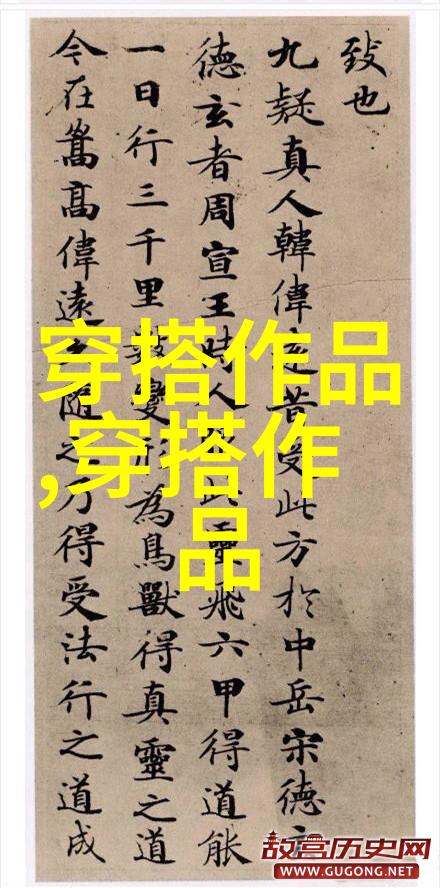 致也
九疑真人韓偉遠昔受此方扵中岳宋德玄
德玄者周宣王時人服此靈飛六甲得道能
一日行三千里數變形為鳥獸得真靈之道
今在嵩高偉遠久隨之乃得受法行之道成
穿搭作品
,穿搭作
品
故宫历史网
WWW.GUGONG.NET